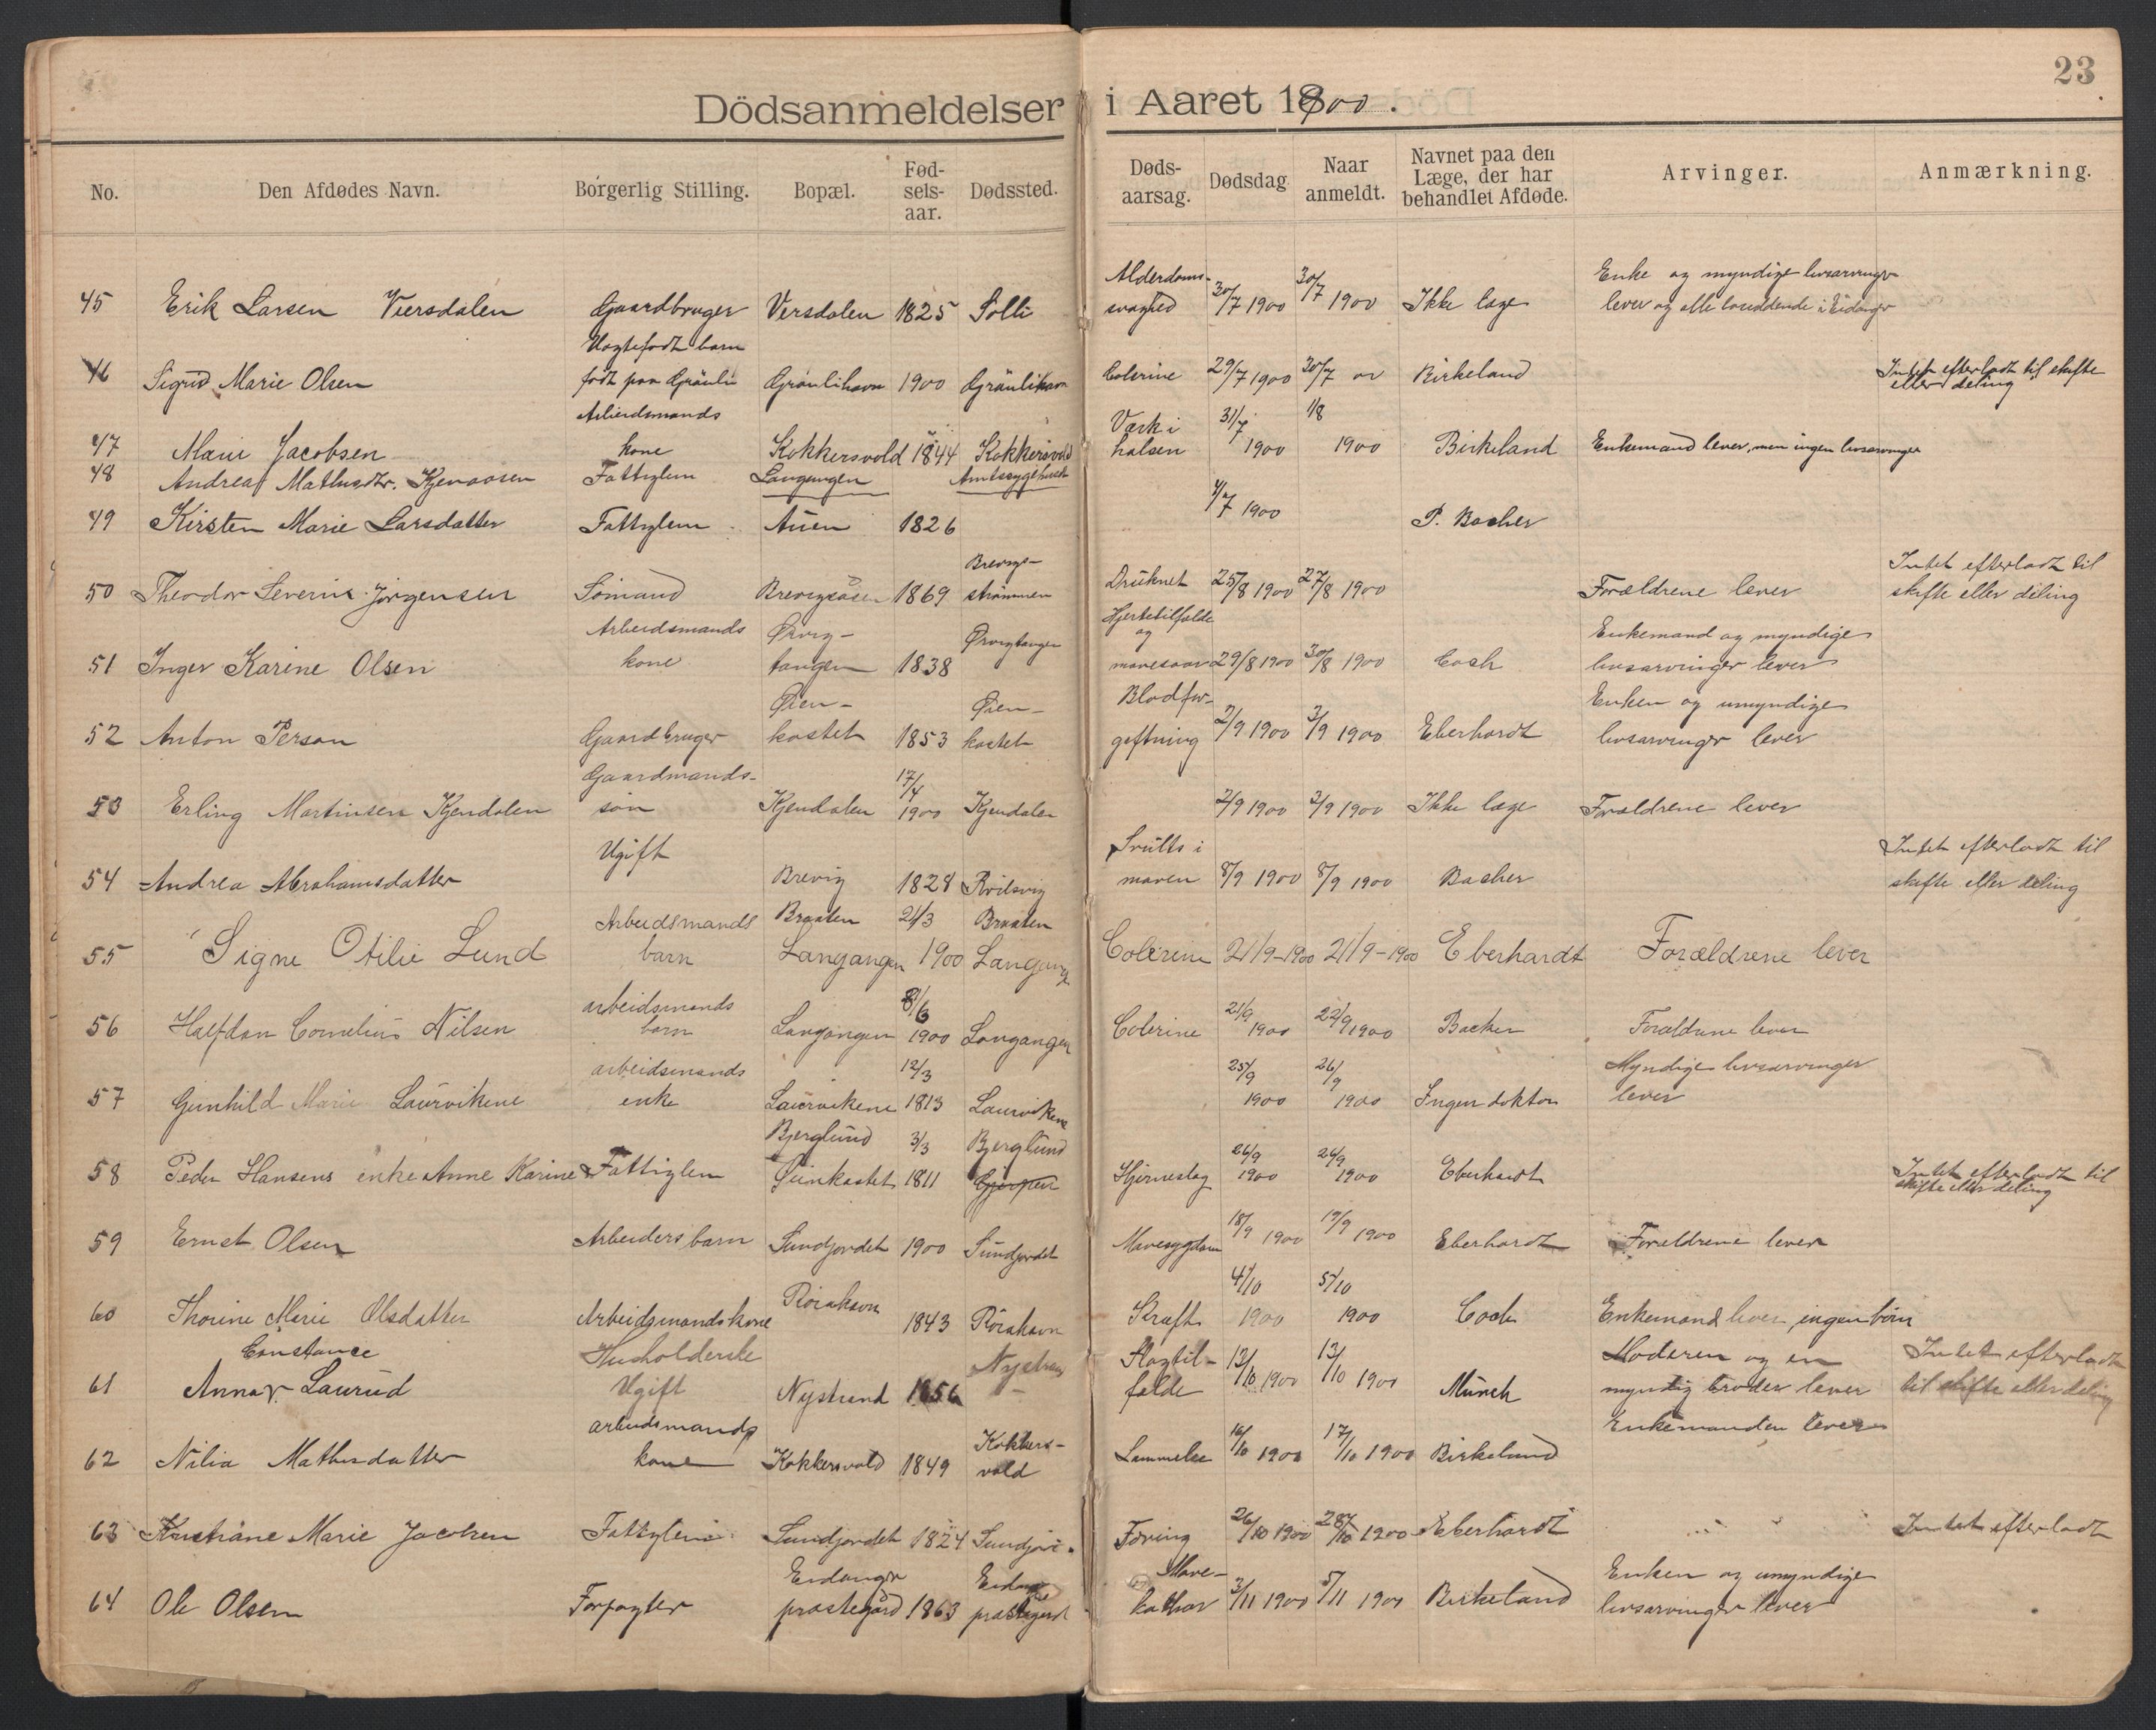 23
Dödsanmeldelser i Aaret 1900.
No. Den Afdødes Navn. Borgerlig Stilling. Bopæl. Fødselsaar. Dødssted. Dødsaarsag. Dødsdag Naar anmeldt. Navnet paa den Læge, der har behandlet Afdøde. Arvinger. Anmærkning.
45 Erik Larsen Versdalen Gaardbruger Versdalen 1825 Solli Alderdomssvaghed 30/7 1900 30/7 1900 Ikke læge Enke og myndige livsarvinger lever og alle i Eidanger
46 Sigrid Marie Olsen Uægtefødt barn født paa Grönli Grönlihavn 1900 Grönlihavn Colerine 29/7 1900 30/7 00 Birkeland Intet efterladt til skifte eller deling
47 Marie Jacobsen Arbeidsmands kone Kokkersvold 1844 Kokkersvold Værk i halsen 31/7 1900 1/8 1900 Birkeland Enkemand lever, men ingen livsarvinger
48 Andrea Mathisdtr. Kjenaasen Fattiglem Langangen Amtssygehuset
49 Kirsten Marie Larsdatter Fattiglem Auen 1826 4/7 1900 P. Backer
50 Theodor Severin Jörgensen Sömand Brevigsåsen 1869 Brevigsströmmen Druknet 25/8 1900 27/8 1900 Forældrene lever Intet efterladt til skifte eller deling
51 Inger Karine Olsen Arbeidsmands kone Ørvigtangen 1838 Ørvigtangen Hjertetilfælde og mavesaar 29/8 1900 30/8 1900 Coch Enkemand og myndige livsarvinger lever
52 Anton Person Gaardbruger Øienkastet 1853 Øienkastet Blodforgiftning 2/9 1900 3/9 1900 Eberhardt Enken og umyndige livsarvinger lever
53 Erling Martinsen Kjendalen Gaardmandssön Kjendalen 17/4 1900 Kjendalen 2/9 1900 3/9 1900 Ikke læge Forældrene lever
54 Andrea Abrahamsdatter Ugift Brevig 1828 Svults i maven 8/9 1900 8/9 1900 Backer Intet efterladt til skifte eller deling
55 Signe Otilie Lund Arbeidsmands barn Braaten Langangen 21/3 1900 Braaten Langangen Colerine 21/9-1900 21/9-1900 Eberhardt Forældrene lever
56 Halfdan Cornelius Nilsen arbeidsmands barn Langangen 8/6 1900 Langangen Colerine 21/9 1900 22/9 1900 Backer Forældrene lever
57 Gunhild Marie Laurvikene arbeidsmands enke Laurvikene 12/3 1813 Laurvikene 25/9 1900 26/9 1900 Ingen doktor Myndige livsarvinger lever
58 Peder Hansens enke Anne Karine Fattiglem Bjerglund 3/3 1811 Bjerglund Gjerpen Hjerneslag 26/9 1900 26/9 1900 Eberhardt Intet efterladt til skifte eller deling
59 Ernst Olsen Arbeiders barn Sundjordet 1900 Sundjordet Mavesygdom 18/9 1900 19/9 1900 Eberhardt Forældrene lever
60 Thorine Marie Olsdatter Arbeidsmandskone Rörakavn 1843 Rörakavn Kræft 4/10 1900 5/10 1900 Coch Enkemand lever, ingen börn
61 Anna Constance Laurud Husholderske Ugift Nystrand 1856 Nystrand Slagtilfælde 12/10 1900 13/10 1900 Münch Moderen og en myndig broder lever Intet efterladt til skifte eller deling
62 Nilia Mathisdatter arbeidsmands kone Kokkersvold 1849 Kokkersvold Lammelse 16/10 1900 17/10 1900 Birkeland Enkemanden lever
63 Kristiane Marie Jacobsen Fattiglem Sundjordet 1824 Sundjor. Tæring 26/10 1900 28/10 1900 Eberhardt Intet efterladt
64 Ole Olsen Forpagter Eidanger prestegård 1863 Eidanger prestegård Mavekathar 3/11 1900 5/11 1900 Birkeland Enken og umyndige livsarvinger lever